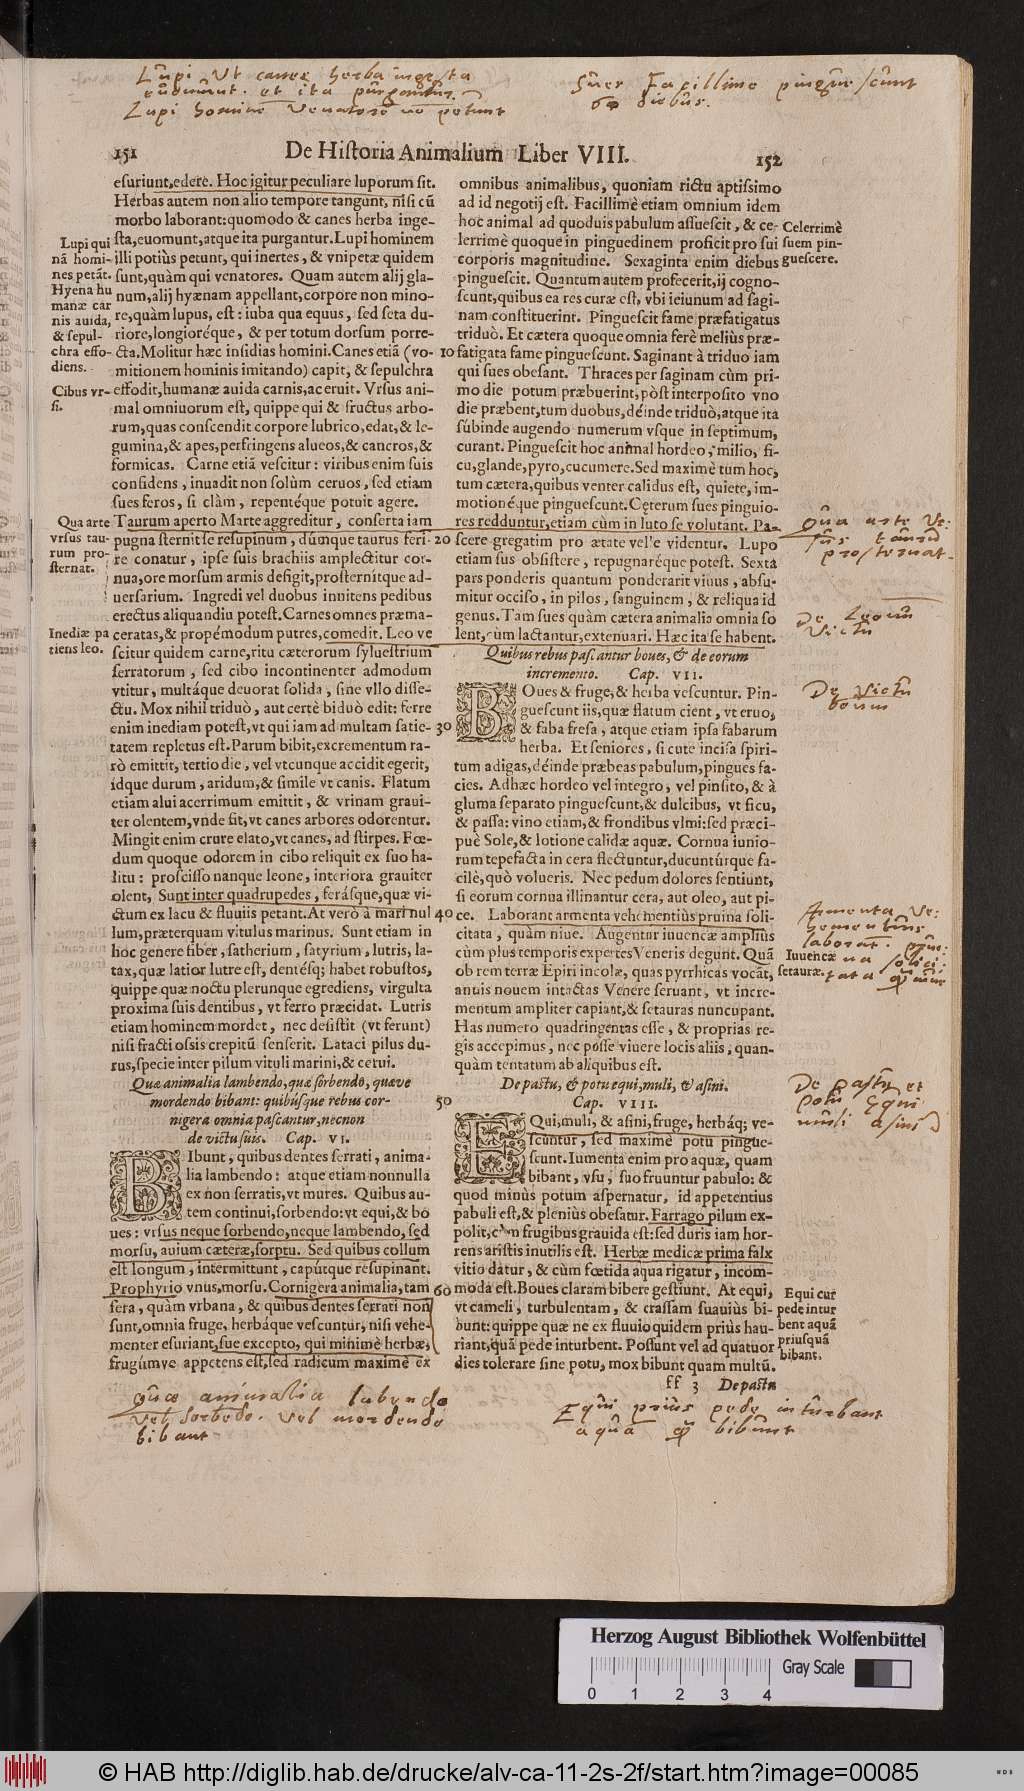 Lupi Ut canes herba ingesta
euomunt. et ita purgantur.
Lupi homine Venatore no petunt
Sues Facillime pinguescunt
60 diebus.
151
De Historia Animalium Liber VIII.
152
esuriunt,edere. Hoc igitur peculiare luporum sit.
Herbas autem non alio tempore tangunt, nisi cũ
morbo laborant:quomodo & canes herba inge-
sta,euomunt,atque ita purgantur.Lupi hominem
illi potiùs petunt, qui inertes, & vnipetæ quidem
sunt,quàm qui venatores. Quam autem alij gla-
num,alij hyænam appellant,corpore non mino-
re,quàm lupus, est: iuba qua equus, sed seta du-
riore,longioréque, & per totum dorsum porre-
cta.Molitur hæc insidias homini.Canes etiã (vo-
mitionem hominis imitando) capit, & sepulchra
effodit,humanæ auida carnis,ac eruit. Vrsus ani-
mal omniuorum est, quippe qui & fructus arbo-
rum,quas conscendit corpore lubrico,edat,& le-
gumina,& apes,perfringens alueos,& cancros,&
formicas. Carne etiã vescitur: viribus enim suis
confidens, inuadit non solùm ceruos, sed etiam
sues feros, si clàm, repentéque potuit agere.
Taurum aperto Marte aggreditur, conserta iam
pugna sternit se resupinum, dúmque taurus feri-
re conatur, ipse suis brachiis amplectitur cor-
nua,ore morsum armis defigit,prosternítque ad-
uersarium. Ingredi vel duobus innitens pedibus
erectus aliquandiu potest.Carnes omnes præma-
ceratas,& propémodum putres,comedit. Leo ve
scitur quidem carne,ritu cæterorum syluestrium
serratorum, sed cibo incontinenter admodum
vtitur, multáque deuorat solida, sine vllo disse-
ctu. Mox nihil triduò, aut certè biduò edit: ferre
enim inediam potest,vt qui iam ad multam satie-
tatem repletus est.Parum bibit,excrementum ra-
rò emittit, tertio die, vel vtcunque accidit egerit,
idque durum, aridum,& simile vt canis. Flatum
etiam alui acerrimum emittit, & vrinam graui-
ter olentem,vnde fit,vt canes arbores odorentur.
Mingit enim crure elato,vt canes,ad stirpes. Fœ-
dum quoque odorem in cibo reliquit ex suo ha-
litu: proscisso nanque leone, interiora grauiter
olent, Sunt inter quadrupedes, ferásque,quæ vi-
ctum ex lacu & fluuiis petant.At verò à mari nul
lum,præterquam vitulus marinus. Sunt etiam in
hoc genere fiber, satherium, satyrium, lutris, la-
tax,quæ latior lutre est, dentésq; habet robustos,
quippe quæ noctu plerunque egrediens, virgulta
proxima suis dentibus, vt ferro præcidat. Lutris
etiam hominem mordet, nec desistit (vt ferunt)
nisi fracti ossis crepitũ senserit. Lataci pilus du-
rus,specie inter pilum vituli marini,& cerui.
Quæ animalia lambendo,quæ sorbendo, quæve
mordendo bibant: quibúsque rebus cor-
nigera omnia pascantur,necnon
de victu suis. Cap. VI.
BIbunt, quibus dentes serrati, anima-
lia lambendo: atque etiam nonnulla
ex non serratis,vt mures. Quibus au-
tem continui,sorbendo:vt equi,& bo
ues: vrsus neque sorbendo,neque lambendo, sed
morsu, auium cæteræ,sorptu. Sed quibus collum
est longum, intermittunt, capútque resupinant.
Prophyrio vnus,morsu. Cornigera animalia,tam
fera, quàm vrbana, & quibus dentes serrati non
sunt,omnia fruge, herbáque vescuntur, nisi vehe-
menter esuriant,sue excepto, qui minimè herbæ,
frugúmve appetens est,sed radicum maximè ex
Lupi qui
nã homi-
nes petãt.
Hyena hu
manæ car
nis auida,
& sepul-
chra effo-
diens.
Cibus vr-
si.
Qua arte
vrsus tau-
rum pro-
sternat.
Inediæ pa
tiens leo.
10
20
30
40
50
60
omnibus animalibus, quoniam rictu aptissimo
ad id negotij est. Facillimè etiam omnium idem
hoc animal ad quoduis pabulum assuescit, & ce-
lerrimè quoque in pinguedinem proficit pro sui
corporis magnitudine. Sexaginta enim diebus
pinguescit. Quantum autem profecerit,ij cogno-
scunt,quibus ea res curæ est, vbi ieiunum ad sagi-
nam constituerint. Pinguescit fame præfatigatus
triduò. Et cætera quoque omnia ferè meliùs præ-
fatigata fame pinguescunt. Saginant à triduo iam
qui sues obesant. Thraces per saginam cùm pri-
mo die potum præbuerint,pòst interposito vno
die præbent,tum duobus,déinde triduò,atque ita
súbinde augendo numerum vsque in septimum,
curant. Pinguescit hoc animal hordeo, milio, fi-
cu,glande,pyro,cucumere.Sed maximè tum hoc,
tum cætera,quibus venter calidus est, quiete, im-
motionéque pinguescunt.Cęterum sues pinguio-
res redduntur,etiam cùm in luto se volutant. Pa-
scere gregatim pro ætate velle videntur. Lupo
etiam sus obsistere, repugnaréque potest. Sexta
pars ponderis quantum ponderarit viuus, absu-
mitur occiso, in pilos, sanguinem, & reliqua id
genus. Tam sues quàm cætera animalia omnia so
lent, cùm lactantur,extenuari. Hæc ita se habent.
Quibus rebus pascantur boues, & de eorum
incremento. Cap. VII.
BOues & fruge, & herba vescuntur. Pin-
guescunt iis,quæ flatum cient, vt eruo,
& faba fresa, atque etiam ipsa fabarum
herba. Et seniores, si cute incisa spiri-
tum adigas,déinde præbeas pabulum,pingues fa-
cies. Adhæc hordeo vel integro, vel pinsito, & à
gluma separato pinguescunt,& dulcibus, vt ficu,
& passa: vino etiam,& frondibus vlmi:sed præci-
puè Sole,& lotione calidæ aquæ. Cornua iunio-
rum tepefacta in cera flectuntur,ducuntúrque fa-
cilè,quò volueris. Nec pedum dolores sentiunt,
si eorum cornua illinantur cera, aut oleo, aut pi-
ce. Laborant armenta vehementiùs pruina soli-
citata, quàm niue. Augentur iuuencæ ampliùs
cùm plus temporis expertes Veneris degunt. Quã
ob rem terræ Epiri incolæ, quas pyrrhicas vocãt,
annis nouem intactas Venere seruant, vt incre-
mentum ampliter capiant,& setauras nuncupant.
Has numero quadringentas esse, & proprias re-
gis accepimus, nec posse viuere locis aliis, quan-
quàm tentatum ab aliquibus est.
De pastu, & potu equi,muli, & asini.
Cap. VIII.
EQui,muli, & asini,fruge, herbáq; ve-
scuntur, sed maximè potu pingue-
scunt. Iumenta enim pro aquæ, quam
bibant, vsu, suo fruuntur pabulo: &
quod minùs potum aspernatur, id appetentius
pabuli est,& pleniùs obesatur. Farrago pilum ex-
polit,cùm frugibus grauida est:sed duris iam hor-
rens aristis inutilis est. Herbæ medicæ prima falx
vitio datur, & cùm fœtida aqua rigatur, incom-
moda est.Boues claram bibere gestiunt. At equi,
vt cameli, turbulentam, & crassam suauiùs bi-
bunt: quippe quæ ne ex fluuio quidem priùs hau-
riant,quã pede inturbent. Possunt vel ad quatuor
dies tolerare sine potu, mox bibunt quam multũ.
ff 3 De pastu
Celerrimè
suem pin-
guescere.
Qua arte Ve:
sus taurũ
prosternat.
De Leonũ
Victu
De Victu
boum
Armenta Ve:
hementius
laborãt. prui
na solici:
tata qͫ niue
Iuuencæ
setauræ.
De pastu et
potu Equi
muli asini
Equi cur
pede intur
bent aquã
priusquã
bibant.
Quæ animalia labendo
Vel sorbedo. Vel mordendo
bibant
Equi prius pede inturbant
aqua qͫ bibunt
Herzog August Bibliothek Wolfenbüttel
Gray Scale
0 1 2 3 4
© HAB http://diglib.hab.de/drucke/alv-ca-11-2s-2f/start.htm?image=00085